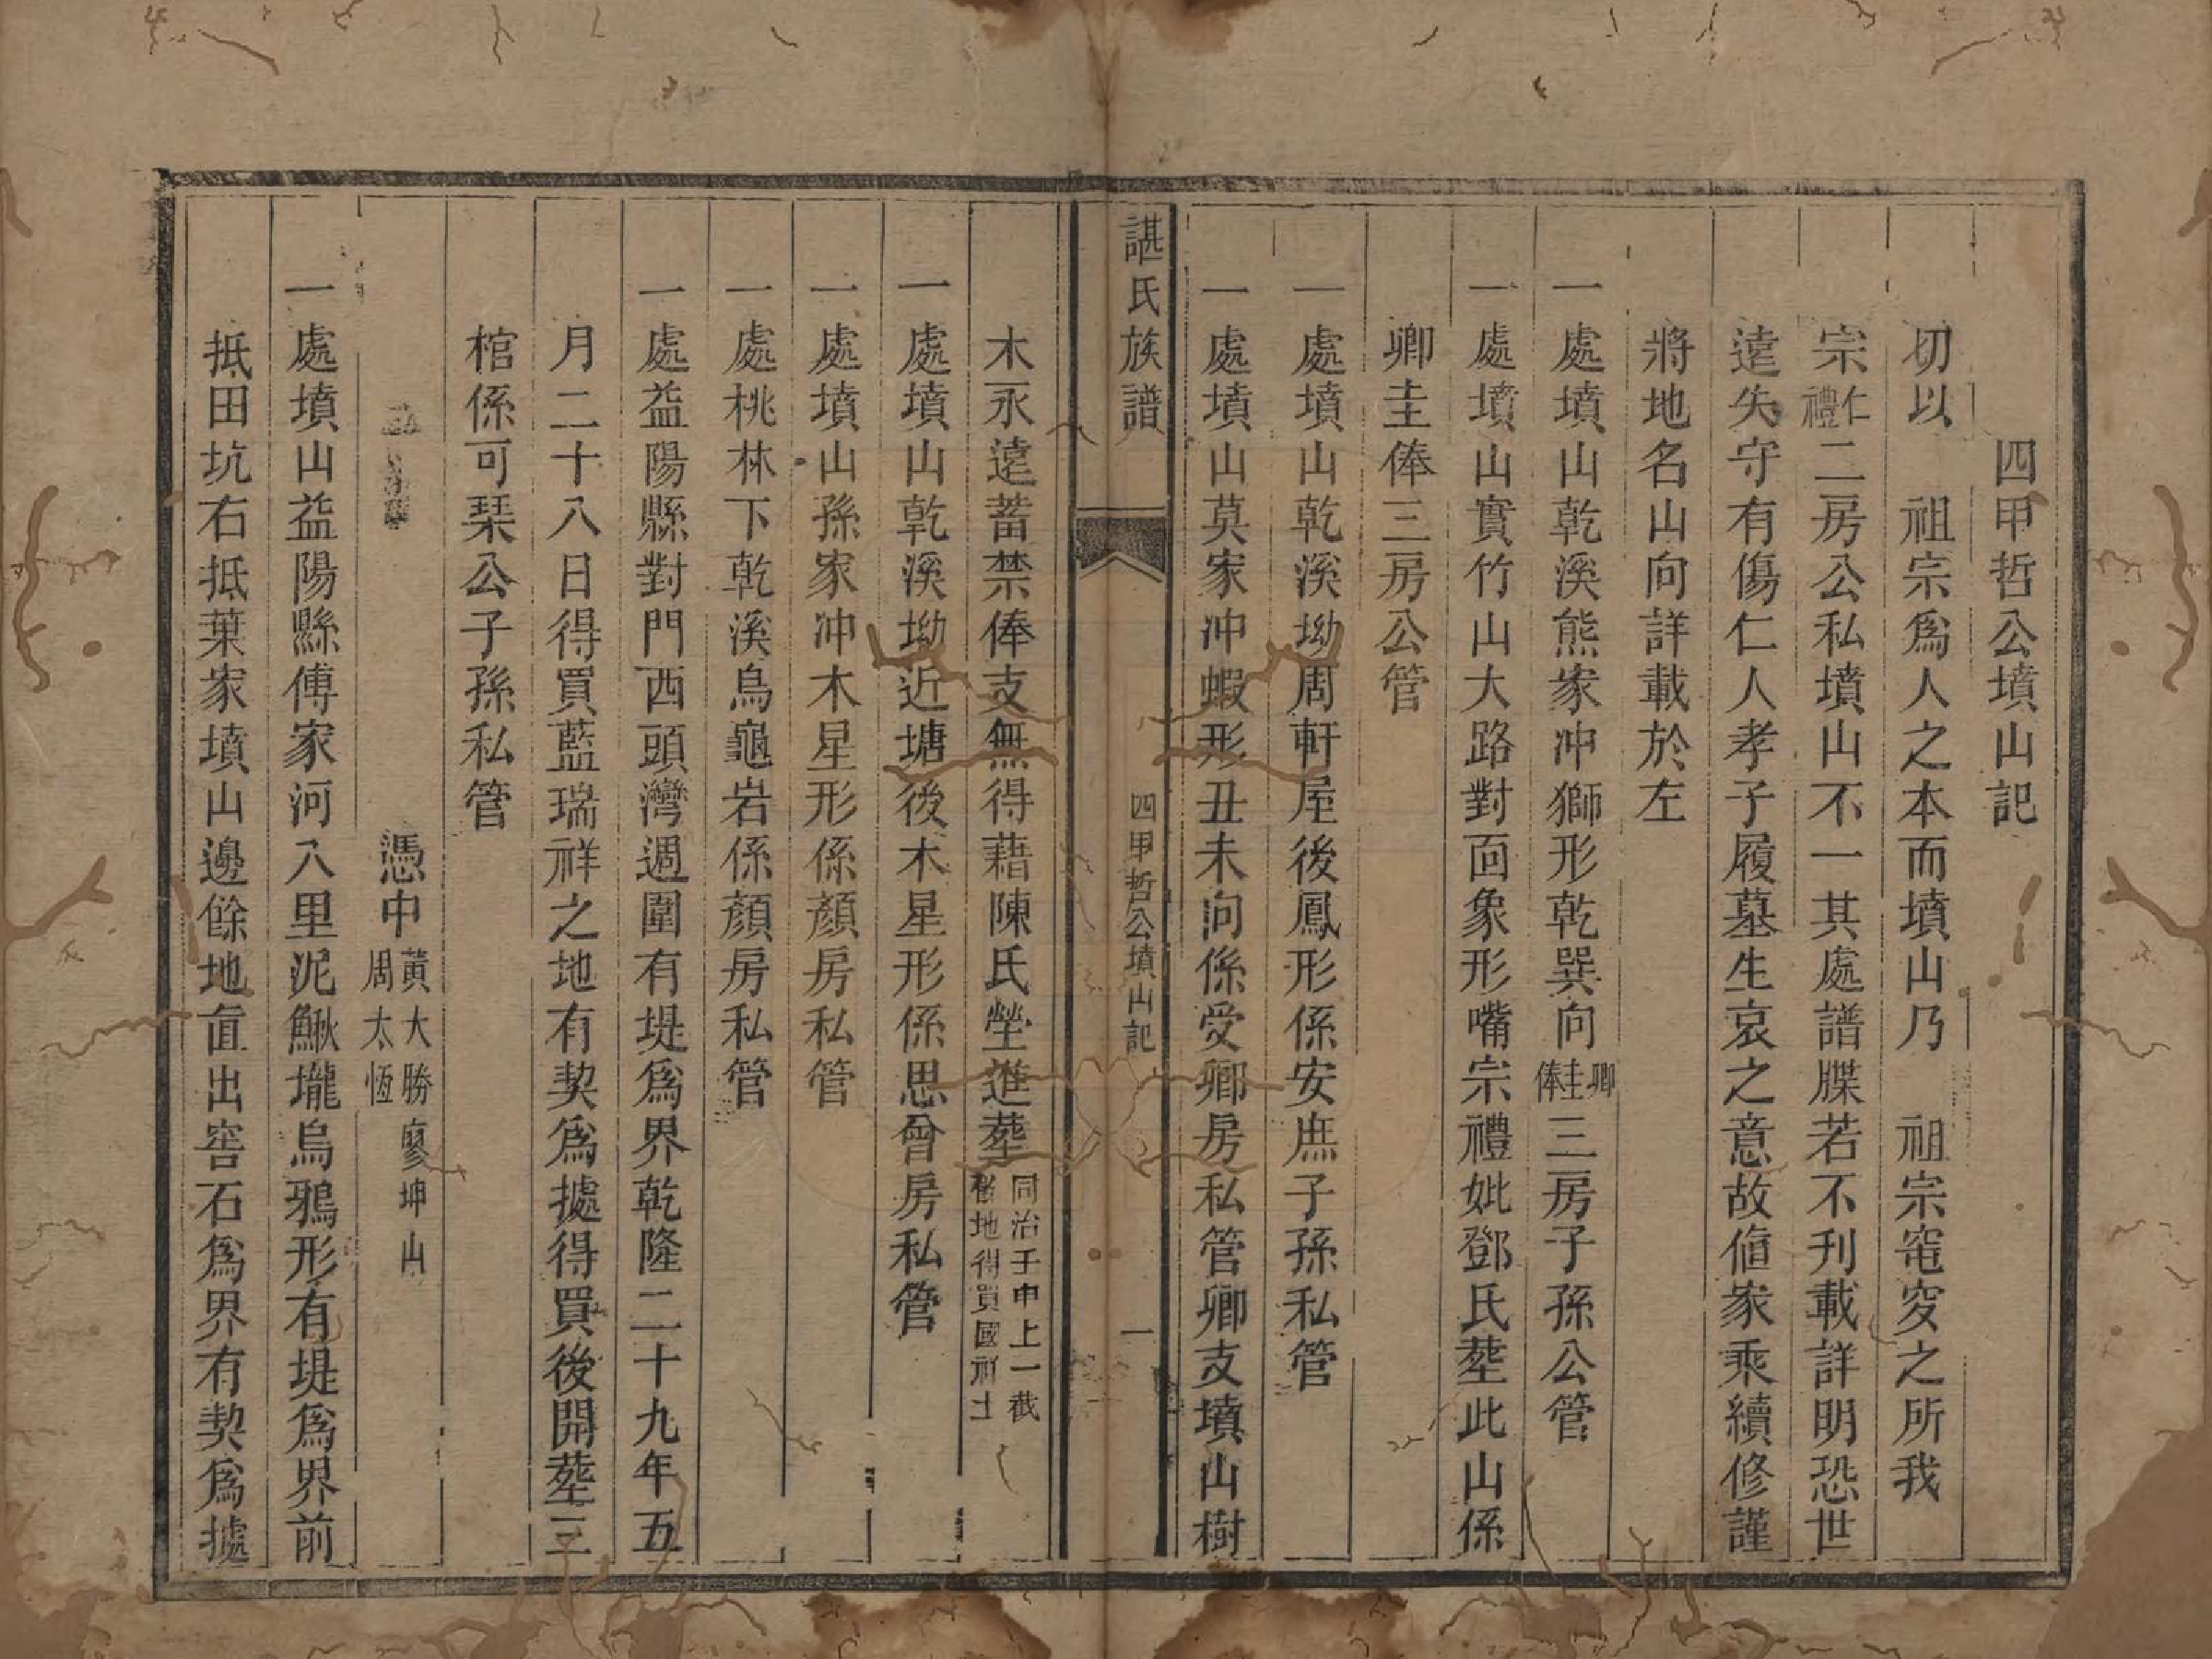 四甲哲公墳山記
切以　祖宗爲人之本而墳山乃　祖宗窀穸之所我
宗仁禮二房公私墳山不一其處譜牒若不刊載詳明恐世
遠失守有傷仁人孝子履墓生哀之意故值家乘續修謹
將地名山向詳載於左
一處墳山乾溪熊家冲獅形乾巽向卿圭俸三房子孫公管
一處墳山實竹山大路對面象形嘴宗禮妣鄧氏塟此山係
卿圭俸三房公管
一處墳山乾溪坳周軒屋後鳳形係安庶子孫私管
一處墳山莫家冲蝦形丑未向係受卿房私管卿支墳山樹
諶氏族譜　四甲哲公墳山記　一
木永遠蓄禁俸支無得藉陳氏塋進塟同治壬申上一截地得買國祥土
一處墳山乾溪坳近塘後木星形係思會房私管
一處墳山孫家冲木星形係顏房私管
一處桃林下乾溪烏龜岩係顏房私管
一處益陽縣對門西頭灣週圍有堤爲界乾隆二十九年五
月二十八日得買藍瑞祥之地有契爲據得買後開塟三
棺係可琹公子孫私管
憑中黃大勝周太恆廖坤山
一處墳山益陽縣傅家河八里泥鰍壠烏鴉形有堤爲界前
抵田坑右抵葉家墳山邊餘地直出窖石爲界有契爲據